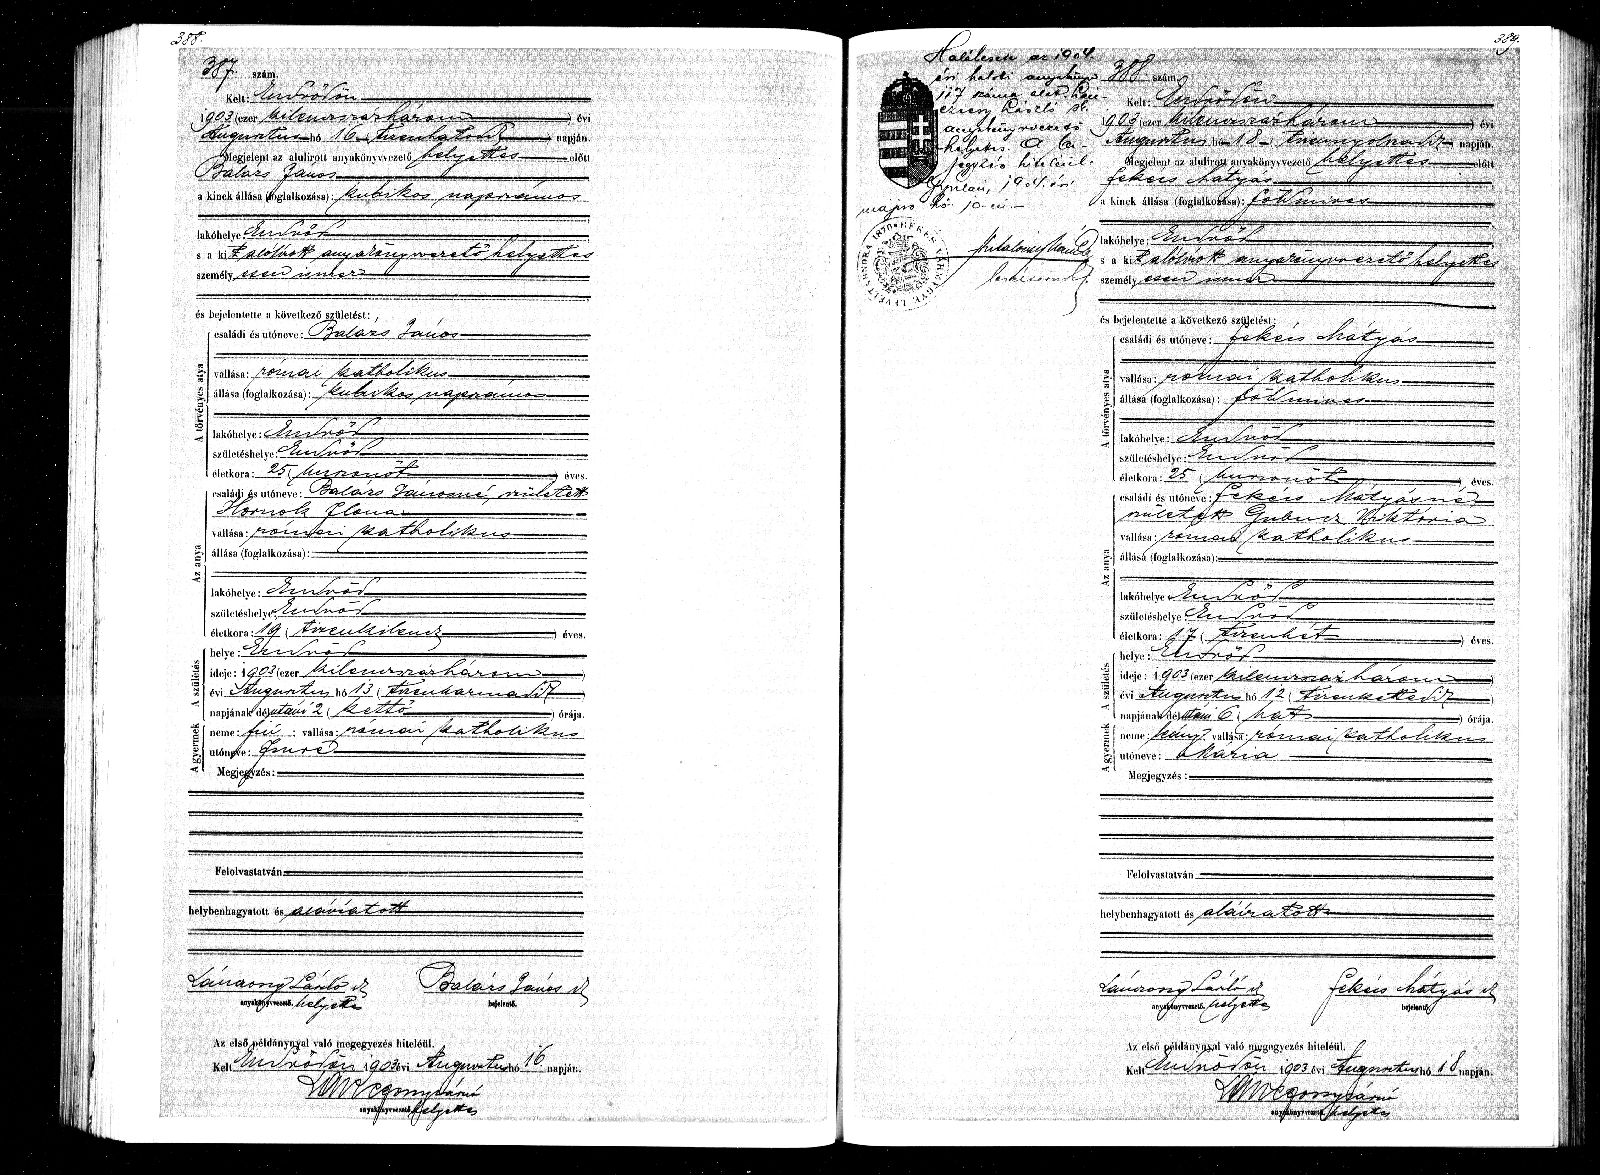 388.
387. szám.
Kelt: Endrődön
1903 (ezer kilencszázhárom) évi
Augusztus hó 16 (tizenhatodik) napján.
Megjelent az alulirott anyakönyvvezető helyettes előtt
Balázs János
a kinek állása (foglalkozása): kubikos napszámos
lakóhelye Endrőd
s a kit alólirott anyakönyvvezető helyettes
személyesen ismer
és bejelentette a következő születést:
A törvényes atya
családi és utóneve: Balázs János
vallása: római katholikus
állása (foglalkozása): kubikos napszámos
lakóhelye: Endrőd
születéshelye: Endrőd
életkora: 25 (huszonöt) éves.
Az anya
családi és utóneve: Balázs Jánosné, született
Hornok Ilona
vallása: római katholikus
állása (foglalkozása):
lakóhelye: Endrőd
születéshelye: Endrőd
életkora: 19 (tizenkilencz) éves.
A születés
helye: Endrőd
ideje: 1903 (ezer kilencszázhárom)
évi Augusztus hó 13 (tizenharmadik)
napjának délutáni 2 (kettő) órája.
A gyermek
neme: fiú; vallása: római katholikus
utóneve: Imre
Megjegyzés:
Felolvastatván
helybenhagyatott és aláíratott
László Balázs János
anyakönyvvezető helyettes bejelentő.
Az első példánynyal való megegyezés hiteléül.
Kelt Endrődön 1903 évi Augusztus hó 16 napján.
anyakönyvvezető helyettes
389.
Halálesete az 1904.
évi haloti anyakönyv
117 száma alatt
László
anyakönyvvezető
helyettes. A be-
jegyzés hiteléül.
Gyulán, 1904. évi
május hó 10-én
BÉKÉS VÁRMEGYE LEVÉLTÁRNOKA 1870
388 szám
Kelt: Endrődön
1903 (ezer kilencszázhárom) évi
Augusztus hó 18 (tizennyolcadik) napján.
Megjelent az alulirott anyakönyvvezető helyettes előtt
Fekécs Mátyás
a kinek állása (foglalkozása): földmíves
lakóhelye: Endrőd
s a kit alólirott anyakönyvvezető helyettes
személyesen ismer
és bejelentette a következő születést:
A törvényes atya
családi és utóneve: Fekécs Mátyás
vallása: római katholikus
állása (foglalkozása): földmíves
lakóhelye: Endrőd
születéshelye: Endrőd
életkora: 25 (huszonöt) éves.
Az anya
családi és utóneve: Fekécs Mátyásné
született Gubucz Viktória
vallása: római katholikus
állása (foglalkozása):
lakóhelye Endrőd
születéshelye: Endrőd
életkora: 17 (tizenhét) éves.
A születés
helye: Endrőd
ideje: 1903 (ezer kilencszázhárom)
évi Augusztus hó 12 (tizenkettedik)
napjának délutáni 6 (hat) órája.
A gyermek
neme: leány; vallása: római katholikus
utóneve: Mária
Megjegyzés:
Felolvastatván
helybenhagyatott és aláíratott
László Fekécs Mátyás
anyakönyvvezető helyettes bejelentő.
Az első példánynyal való megegyezés hiteléül.
Kelt Endrődön 1903 évi Augusztus hó 18 napján.
anyakönyvvezető helyettes